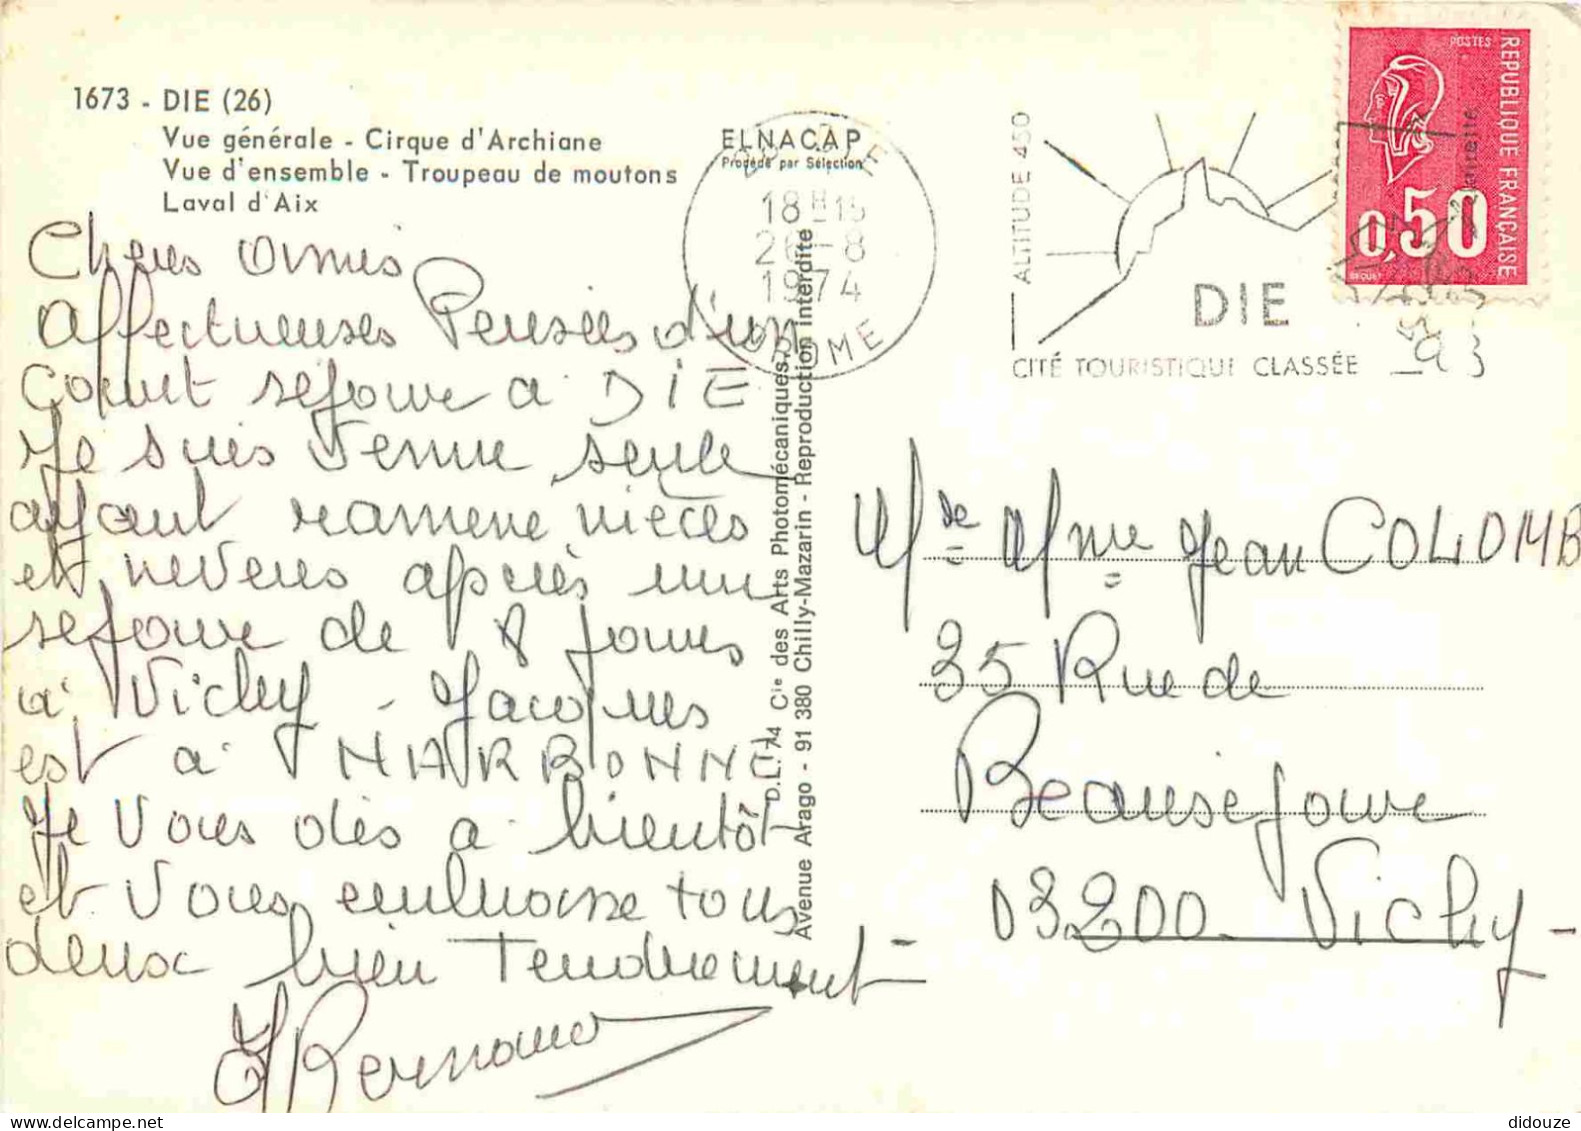 1673 - DIE (26)
Vue générale - Cirque d'Archiane
Vue d'ensemble - Troupeau de moutons
Laval d'Aix
ELNACAP
Procédé par Sélection
26 DIE
18H15
26-8
1974
DROME
ALTITUDE 450
DIE
CITÉ TOURISTIQUE CLASSÉE
POSTES
REPUBLIQUE FRANÇAISE
0,50
BEQUET
Chers Amis
Affectueuses Pensées d'un
Court séjour à DIE
Je suis venue seule
ayant ramené nièces
et neveux après un
séjour de 8 jours
à Vichy - Jacques
est à NARBONNE
Je vous dis à bientôt
et vous embrasse tous
deux bien Tendrement -
D.L. 74 Cie des Arts Photomécaniques
Avenue Arago - 91 380 Chilly-Mazarin - Reproduction interdite
Mr de Mme Jean COLOMB
35 Rue de
Beauséjour
03200 - Vichy -
didouze